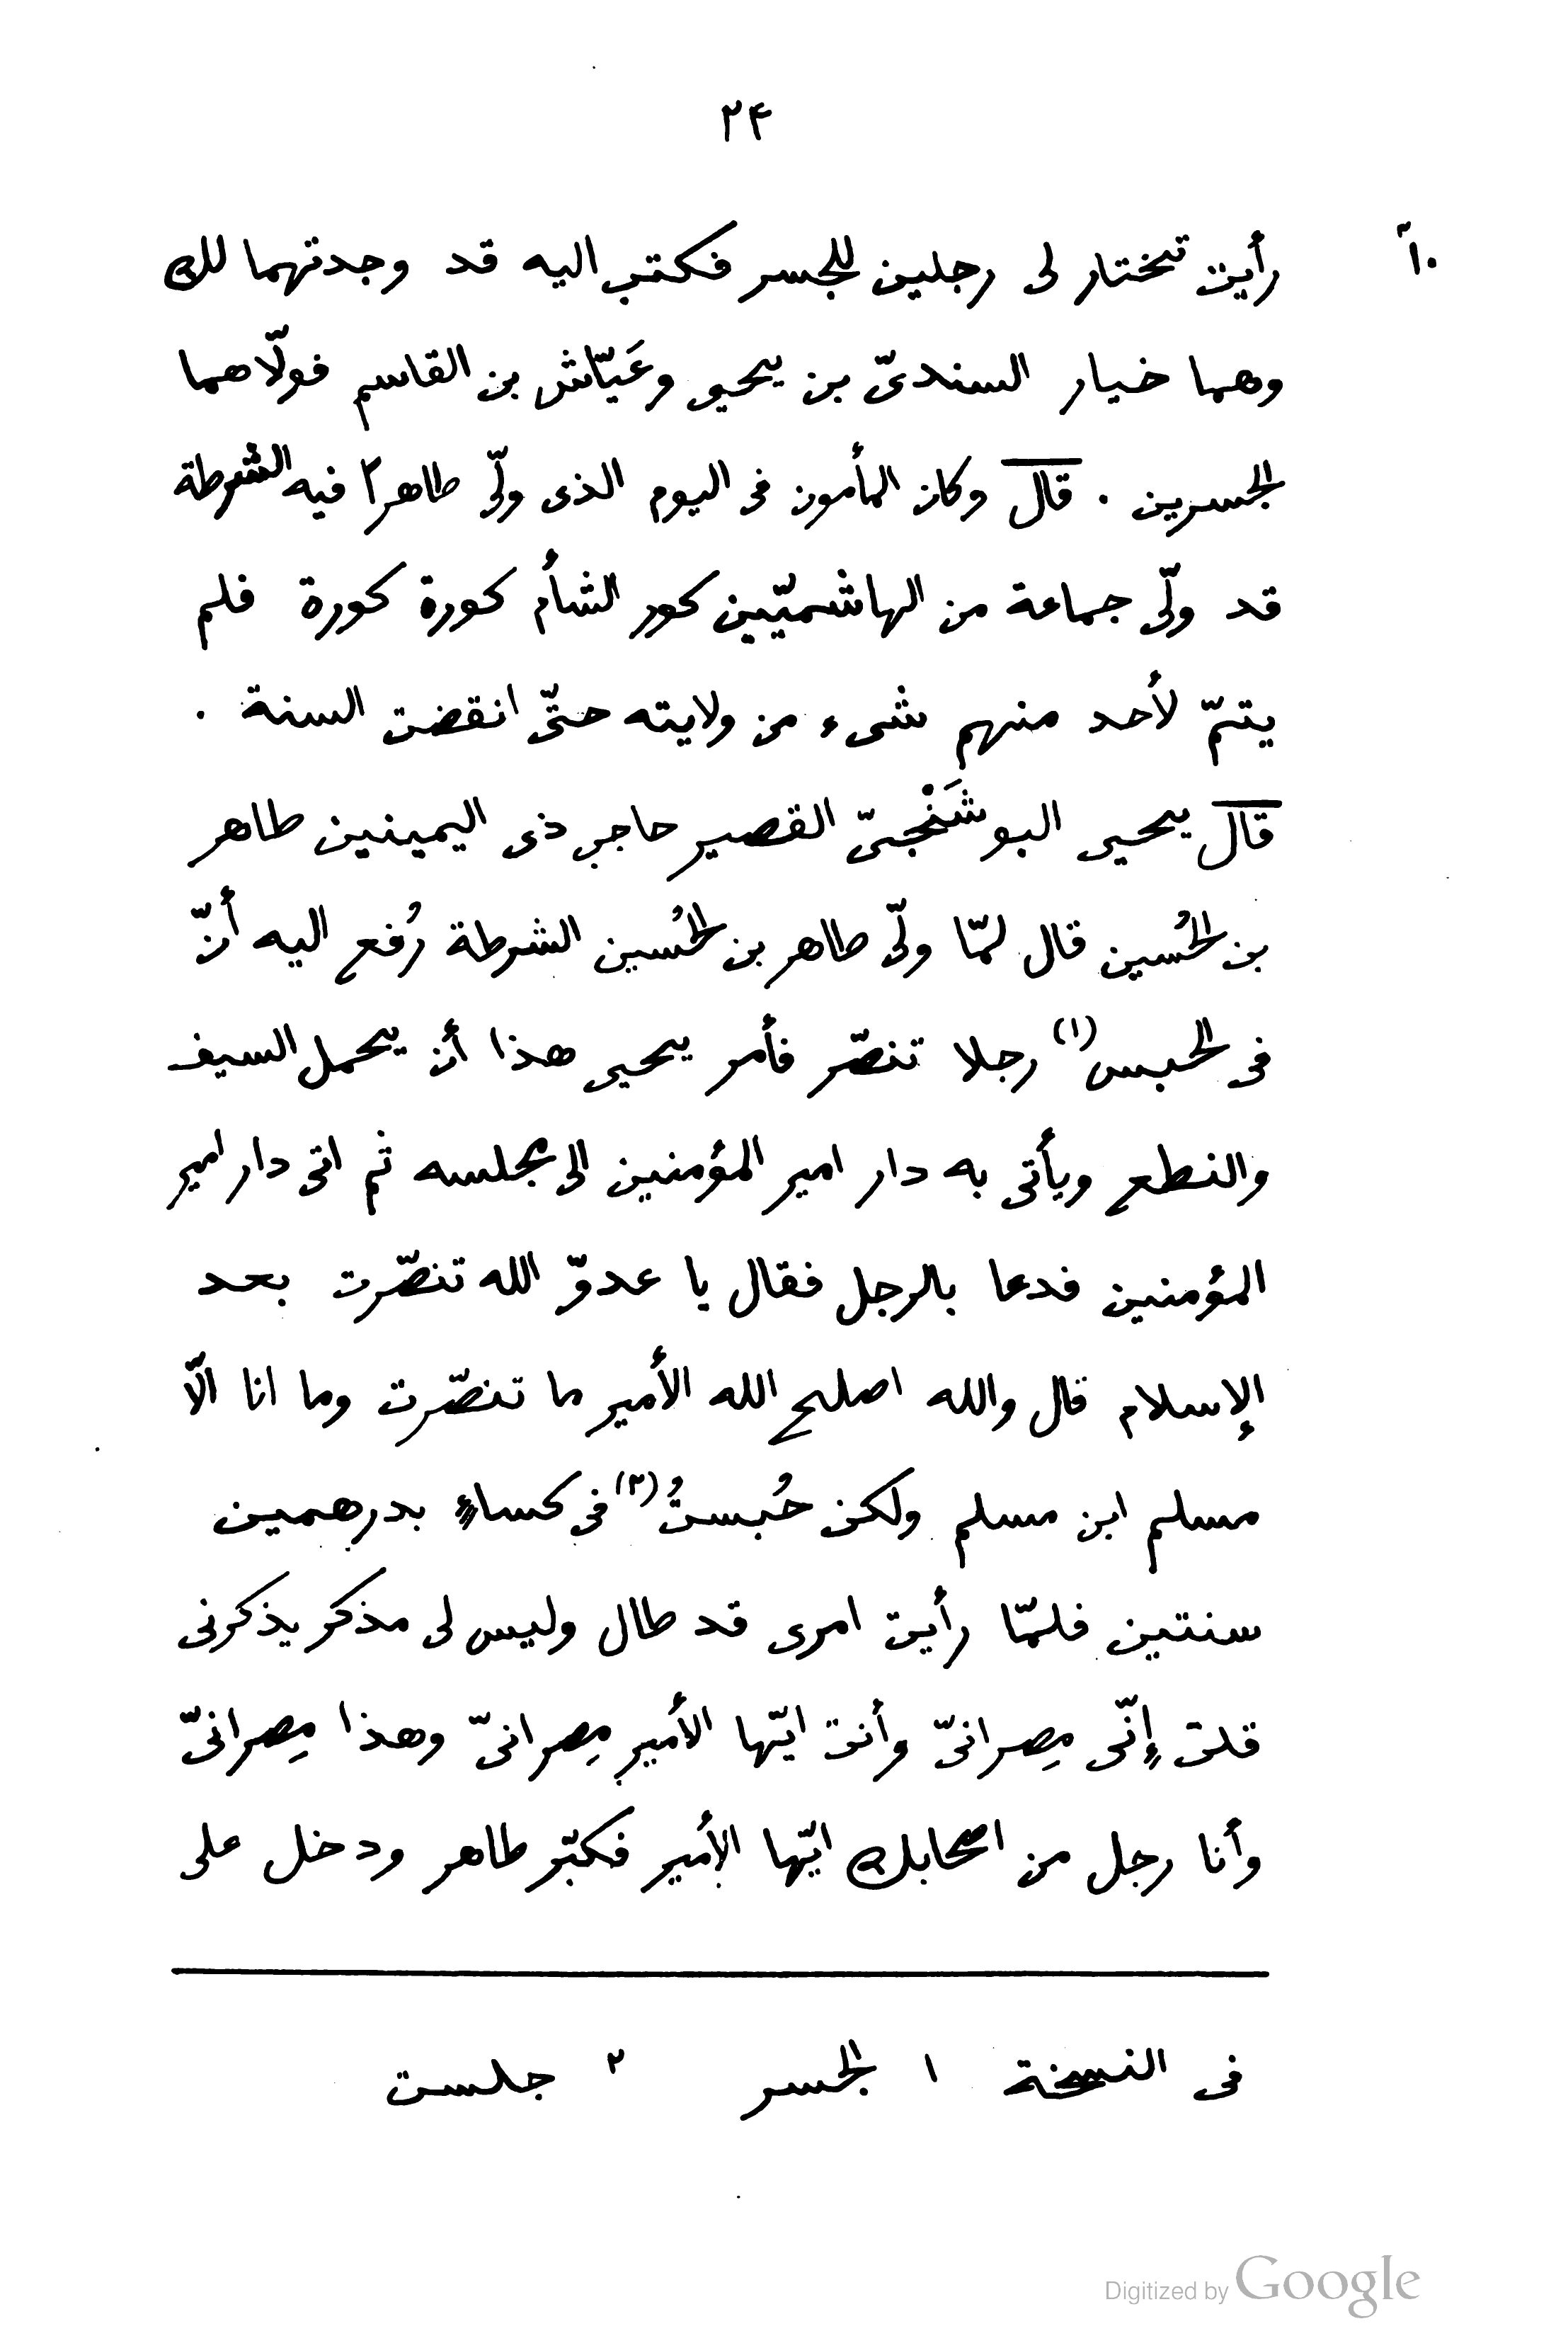 ٢۴
١٠آ
رأيت تختار لى رجلين للجسر فكتب اليه قد وجدتهما لك
وهما خيار السندىّ بن يحيى وعَيّاش بن القاسم فولّاهما
الجسرين . قال وكان المأمون فى اليوم الذى ولّى طاهرا فيه الشرطة
قد ولّى جماعة من الهاشميّين كور الشأم كورة كورة فلم
يتمّ لأحد منهم شىء من ولايته حتّى انقضت السنة .
قال يحيى البوشَنْجىّ القصير حاجب ذى اليمينين طاهر
بن الحُسين قال لمّا ولّى طاهر بن الحُسين الشرطة رُفع اليه أنّ
فى الحبس(١) رجلا تنصّر فأمر يحيى هذا أن يحمل السيف
والنطع ويأتى به دار امير المؤمنين الى مجلسه ثم اتى دار امير
المؤمنين فدعا بالرجل فقال يا عدوّ الله تنصّرت بعد
الإسلام قال والله اصلح الله الأمير ما تنصّرت وما انا الّا
مسلم ابن مسلم ولكن حُبستُ(٢) فى كساءٍ بدرهمين
سنتين فلمّا رأيت امرى قد طال وليس لى مذكر يذكرنى
قلت إنّى مِصرانىّ وأنت ايّها الأمير مِصرانىّ وهذا مِصرانىّ
وأنا رجل من اصحابك ايّها الأمير فكبّر طاهر ودخل على
فى النسخة ١ الجسر ٢ جلست
Digitized by Google